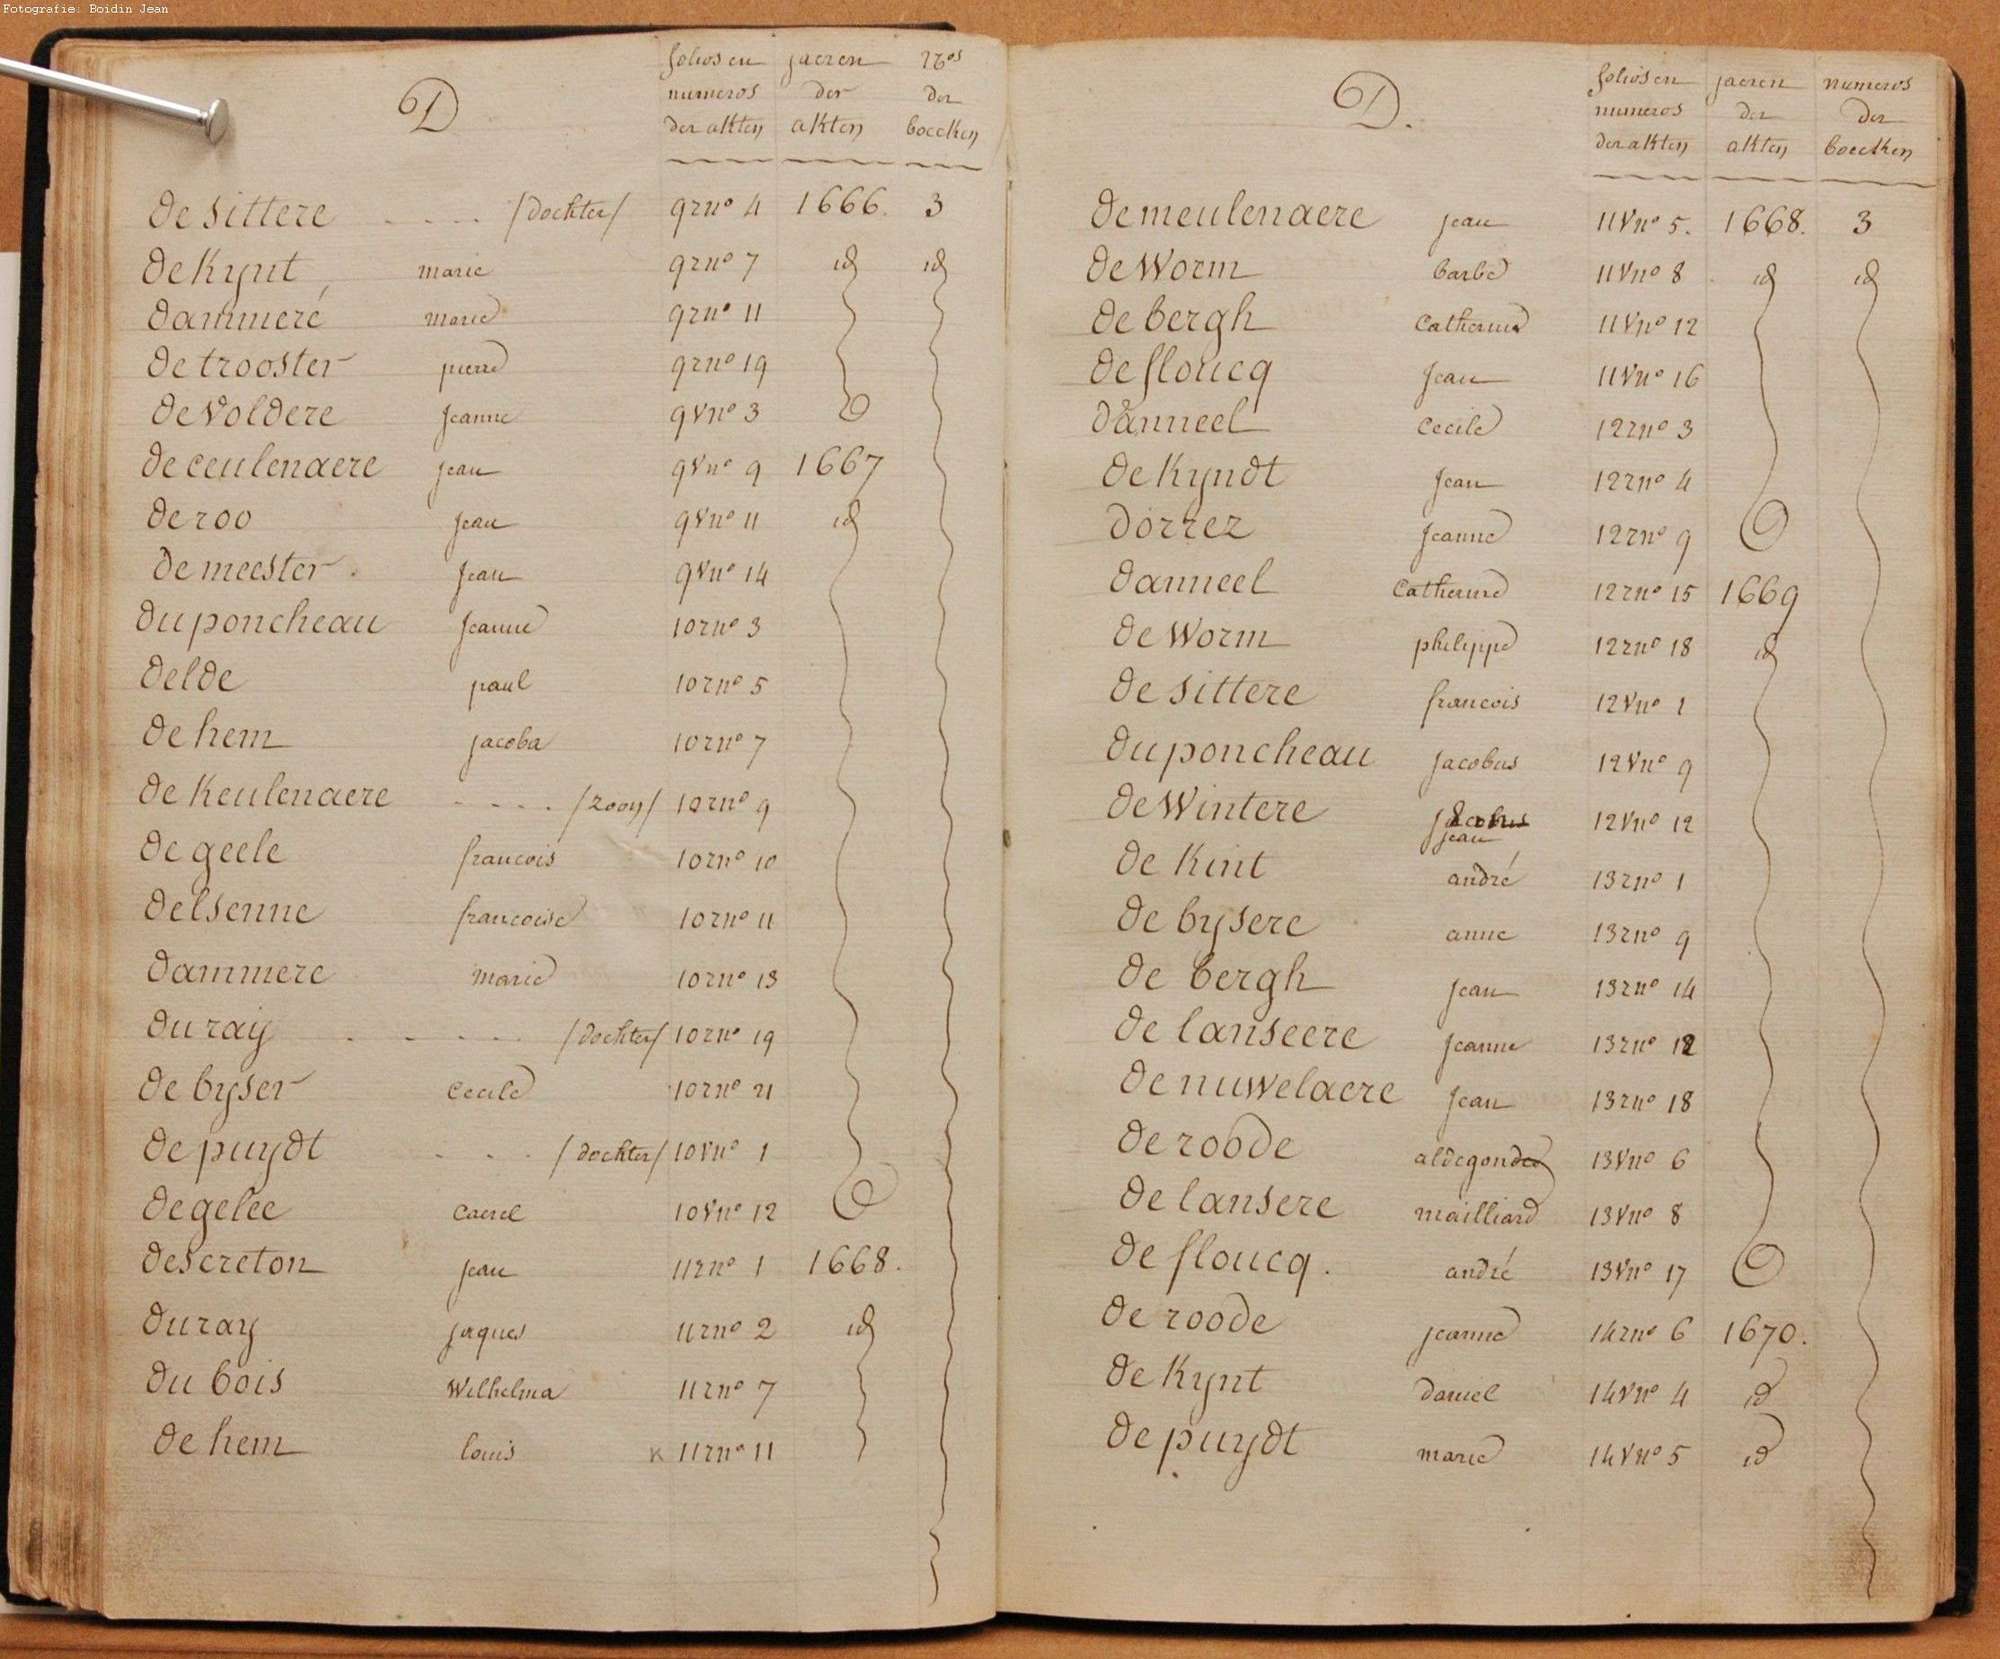 Fotografie: Boidin Jean
D
folios en jaeren nos
numeros der der
der akten akten boecken
de sittere - - - - /dochter/ 9 r no 4 1666. 3
de Kynt marie 9 r no 7 id id
dammeré marie 9 r no 11
de trooster pierre 9 r no 19
de Voldere Jeanne 9 v no 3
de ceulenaere jean 9 v no 9 1667
de roo jean 9 v no 11 id
de meester Jean 9 v no 14
du poncheau Jeanne 10 r no 3
delde paul 10 r no 5
de hem jacoba 10 r no 7
de Keulenaere - - - - /zoon/ 10 r no 9
de geele francois 10 r no 10
delsenne francoise 10 r no 11
dammere marie 10 r no 13
du ray - - - - - /dochter/ 10 r no 19
de byser Cecile 10 r no 21
de puydt - - - /dochter/ 10 v no 1
de gelee Caerel 10 v no 12
descreton jean 11 r no 1 1668.
du ray jaques 11 r no 2 id
du bois Wilhelma 11 r no 7
de hem louis x 11 r no 11
D.
folios en jaeren numeros
numeros der der
der akten akten boecken
de meulenaere jean 11 v no 5. 1668. 3
de Worm barbe 11 v no 8 id id
de bergh Catherine 11 v no 12
de floucq Jean 11 v no 16
danneel Cecile 12 r no 3
de Kyndt Jean 12 r no 4
dorrez Jeanne 12 r no 9
danneel Catherine 12 r no 15 1669
de Worm philippe 12 r no 18 id
de sittere francois 12 v no 1
du poncheau Jacobus 12 v no 9
de Wintere Jacobus 12 v no 12
jean
de Kint andré 13 r no 1
de bysere anne 13 r no 9
de bergh jean 13 r no 14
de lanseere Jeanne 13 r no 12
de nuwelaere Jean 13 r no 18
de roode aldegonde 13 v no 6
de lansere mailliard 13 v no 8
de floucq. andré 13 v no 17
de roode jeanne 14 r no 6 1670.
de Kynt daniel 14 v no 4 id
de puydt marie 14 v no 5 id